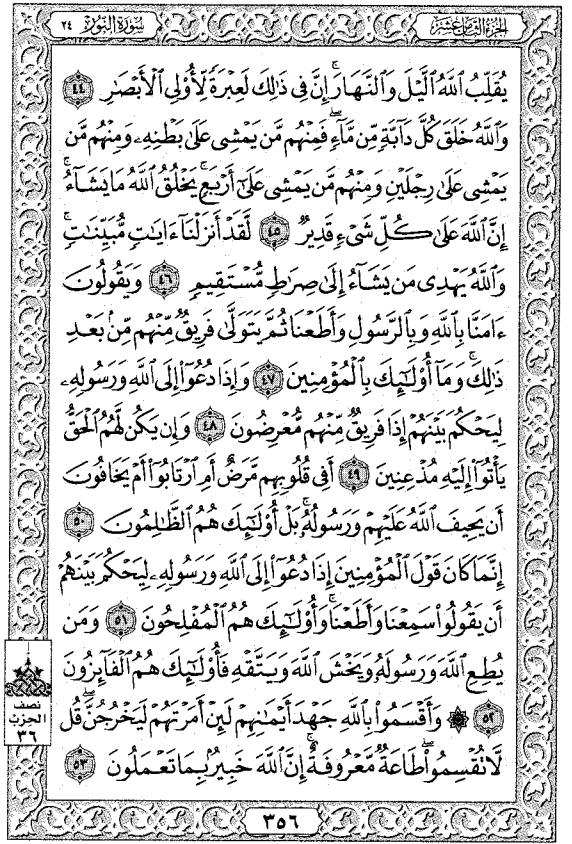 الجزء الثامن عشر
سورة النور ٢٤
يُقَلِّبُ ٱللَّهُ ٱلَّيْلَ وَٱلنَّهَارَۚ إِنَّ فِى ذَٰلِكَ لَعِبْرَةً لِّأُو۟لِى ٱلْأَبْصَٰرِ ٤٤
وَٱللَّهُ خَلَقَ كُلَّ دَآبَّةٍ مِّن مَّآءٍۖ فَمِنْهُم مَّن يَمْشِى عَلَىٰ بَطْنِهِۦ وَمِنْهُم مَّن
يَمْشِى عَلَىٰ رِجْلَيْنِ وَمِنْهُم مَّن يَمْشِى عَلَىٰٓ أَرْبَعٍۚ يَخْلُقُ ٱللَّهُ مَا يَشَآءُۚ
إِنَّ ٱللَّهَ عَلَىٰ كُلِّ شَىْءٍ قَدِيرٌ ٤٥ لَّقَدْ أَنزَلْنَآ ءَايَٰتٍ مُّبَيِّنَٰتٍۚ
وَٱللَّهُ يَهْدِى مَن يَشَآءُ إِلَىٰ صِرَٰطٍ مُّسْتَقِيمٍ ٤٦ وَيَقُولُونَ
ءَامَنَّا بِٱللَّهِ وَبِٱلرَّسُولِ وَأَطَعْنَا ثُمَّ يَتَوَلَّىٰ فَرِيقٌ مِّنْهُم مِّنۢ بَعْدِ
ذَٰلِكَۚ وَمَآ أُو۟لَٰٓئِكَ بِٱلْمُؤْمِنِينَ ٤٧ وَإِذَا دُعُوٓا۟ إِلَى ٱللَّهِ وَرَسُولِهِۦ
لِيَحْكُمَ بَيْنَهُمْ إِذَا فَرِيقٌ مِّنْهُم مُّعْرِضُونَ ٤٨ وَإِن يَكُن لَّهُمُ ٱلْحَقُّ
يَأْتُوٓا۟ إِلَيْهِ مُذْعِنِينَ ٤٩ أَفِى قُلُوبِهِم مَّرَضٌ أَمِ ٱرْتَابُوٓا۟ أَمْ يَخَافُونَ
أَن يَحِيفَ ٱللَّهُ عَلَيْهِمْ وَرَسُولُهُۥۚ بَلْ أُو۟لَٰٓئِكَ هُمُ ٱلظَّٰلِمُونَ ٥٠
إِنَّمَا كَانَ قَوْلَ ٱلْمُؤْمِنِينَ إِذَا دُعُوٓا۟ إِلَى ٱللَّهِ وَرَسُولِهِۦ لِيَحْكُمَ بَيْنَهُمْ
أَن يَقُولُوا۟ سَمِعْنَا وَأَطَعْنَاۚ وَأُو۟لَٰٓئِكَ هُمُ ٱلْمُفْلِحُونَ ٥١ وَمَن
يُطِعِ ٱللَّهَ وَرَسُولَهُۥ وَيَخْشَ ٱللَّهَ وَيَتَّقْهِ فَأُو۟لَٰٓئِكَ هُمُ ٱلْفَآئِزُونَ
٥٢ ۞ وَأَقْسَمُوا۟ بِٱللَّهِ جَهْدَ أَيْمَٰنِهِمْ لَئِنْ أَمَرْتَهُمْ لَيَخْرُجُنَّۖ قُل
لَّا تُقْسِمُوا۟ۖ طَاعَةٌ مَّعْرُوفَةٌۚ إِنَّ ٱللَّهَ خَبِيرٌۢ بِمَا تَعْمَلُونَ ٥٣
نصف
الحزب
٣٦
٣٥٦